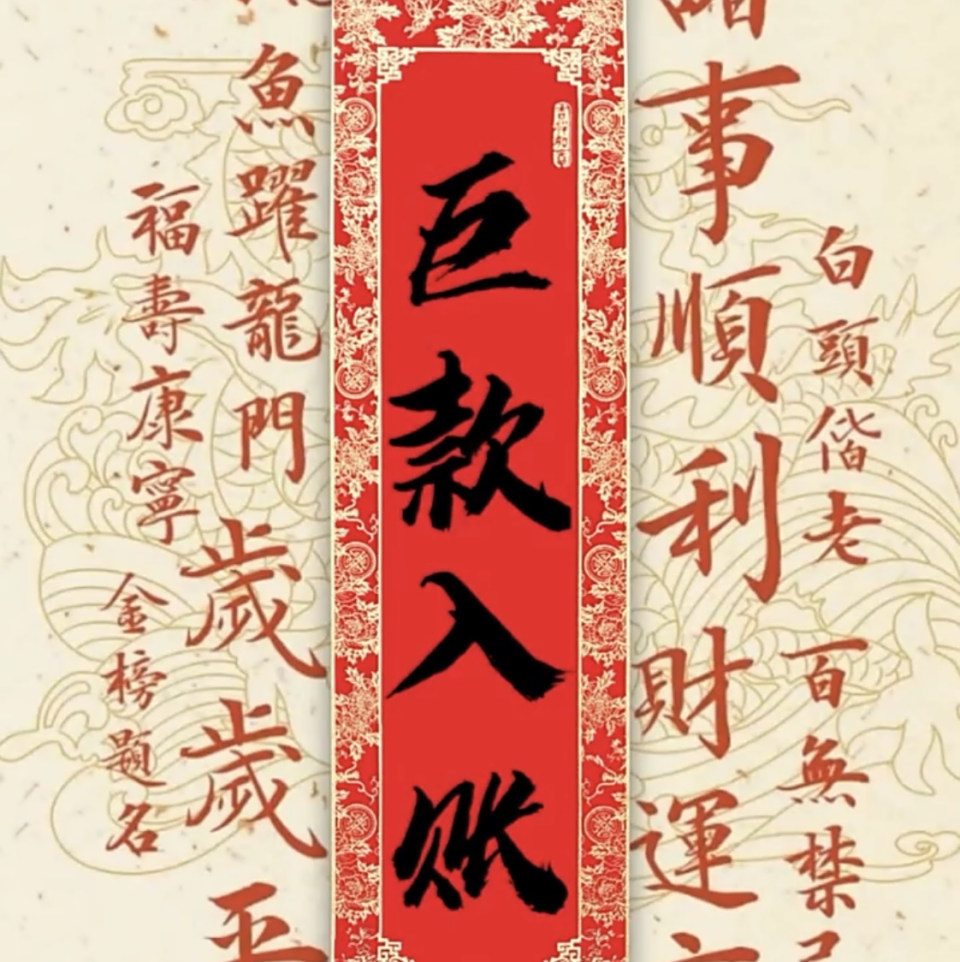 白頭偕老
百無禁
事順利
財運
巨款入账
魚躍龍門
歲歲平
福壽康寧
金榜題名